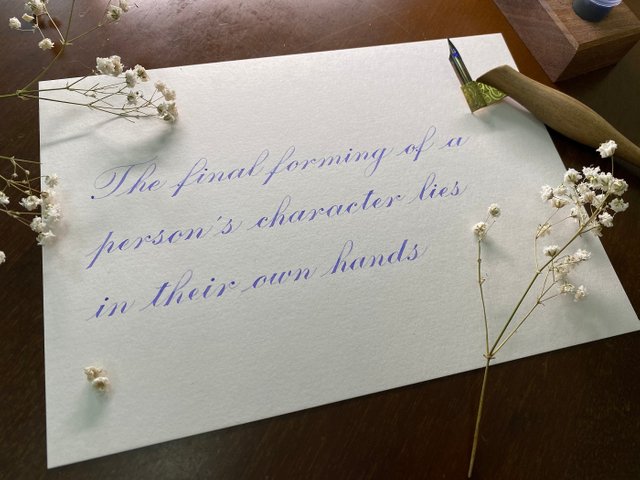 The final forming of a
person's character lies
in their own hands